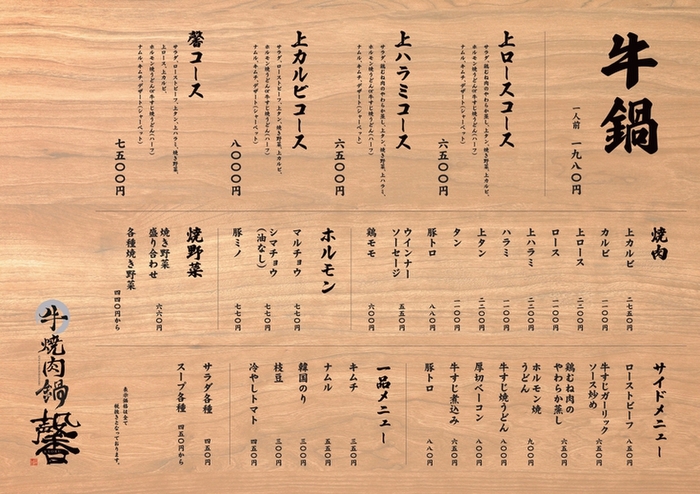 牛鍋
一人前 一九八〇円
上ロースコース
サラダ、鶏むね肉のやわらか蒸し、上タン、焼き野菜、上カルビ、
ホルモン焼うどんor牛すじ焼うどん(ハーフ)
ナムル、キムチ、デザート(シャーベット)
六五〇〇円
上ハラミコース
サラダ、鶏むね肉のやわらか蒸し、上タン、焼き野菜、上ハラミ、
ホルモン焼うどんor牛すじ焼うどん(ハーフ)
ナムル、キムチ、デザート(シャーベット)
六五〇〇円
上カルビコース
サラダ、ローストビーフ、上タン、焼き野菜、上カルビ、
ホルモン焼うどんor牛すじ焼うどん(ハーフ)
ナムル、キムチ、デザート(シャーベット)
八〇〇〇円
馨コース
サラダ、ローストビーフ、上タン、上ハラミ、焼き野菜、
上ロース、上カルビ、
ホルモン焼うどんor牛すじ焼うどん(ハーフ)
ナムル、キムチ、デザート(シャーベット)
七五〇〇円
焼肉
上カルビ 二七五〇円
カルビ 一一〇〇円
上ロース 二二〇〇円
ロース 一一〇〇円
上ハラミ 二二〇〇円
ハラミ 一一〇〇円
上タン 二二〇〇円
タン 一一〇〇円
豚トロ 八八〇円
ウインナー
ソーセージ 五五〇円
鶏モモ 六〇〇円
ホルモン
マルチョウ 七七〇円
シマチョウ
(油なし) 七七〇円
豚ミノ 七七〇円
焼野菜
焼き野菜
盛り合わせ 六六〇円
各種焼き野菜 四四〇円から
サイドメニュー
ローストビーフ 八五〇円
牛すじガーリック
ソース炒め 六五〇円
鶏むね肉の
やわらか蒸し 六五〇円
ホルモン焼
うどん 九〇〇円
牛すじ焼うどん 八八〇円
厚切ベーコン 八八〇円
牛すじ煮込み 六五〇円
豚トロ 八八〇円
一品メニュー
キムチ 三五〇円
ナムル 五五〇円
韓国のり 三〇〇円
枝豆 三〇〇円
冷やしトマト 四五〇円
サラダ各種 四五〇円
スープ各種 四五〇円から
表示価格は全て
税抜きとなっております。
牛焼肉鍋 馨